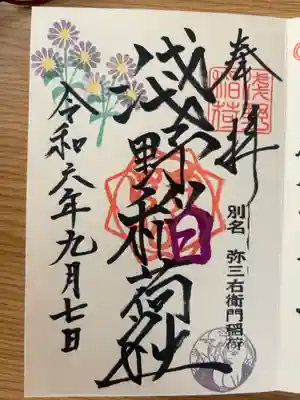 奉拝
浅野
稲荷
別名 弥三右衛門稲荷
浅野稲荷社
令和六年九月七日